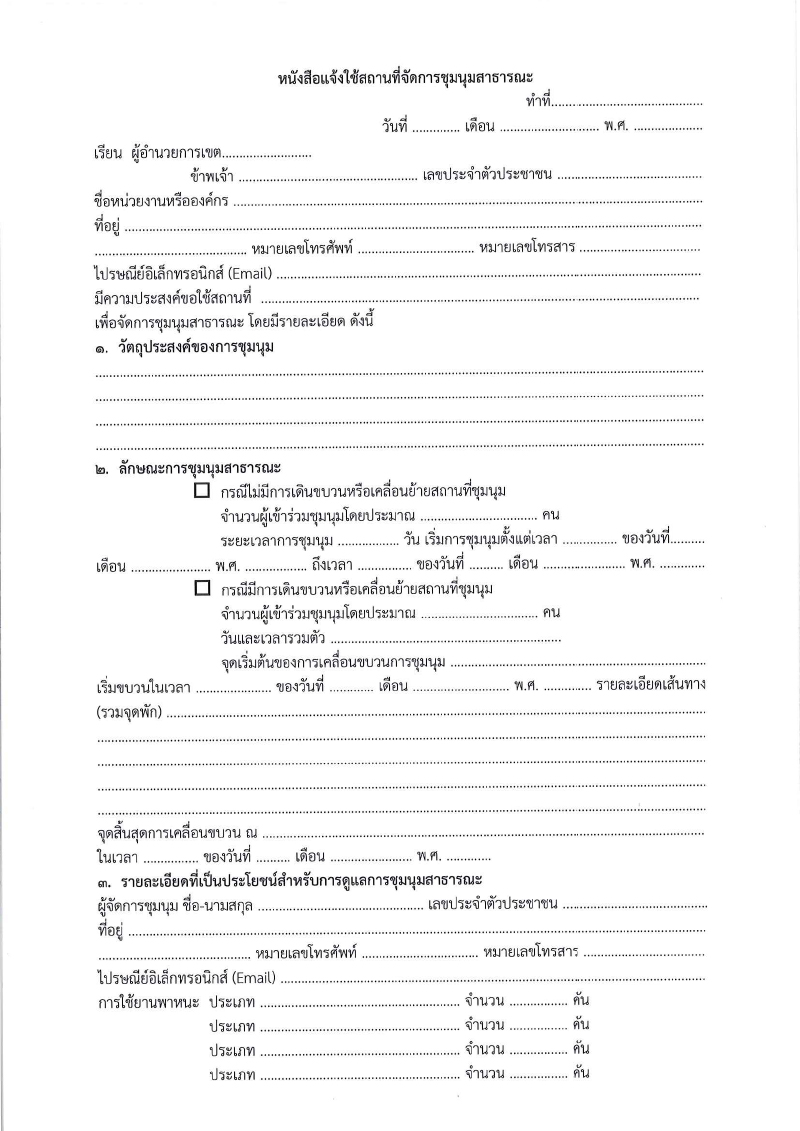 หนังสือแจ้งใช้สถานที่จัดการชุมนุมสาธารณะ
ทำที่..........................................
วันที่ ............. เดือน ........................... พ.ศ. ...................
เรียน ผู้อำนวยการเขต.........................
ข้าพเจ้า .................................................. เลขประจำตัวประชาชน ........................................
ชื่อหน่วยงานหรือองค์กร ....................................................................................................
ที่อยู่ ....................................................................................................
.......................................... หมายเลขโทรศัพท์ ................................ หมายเลขโทรสาร .................................
ไปรษณีย์อิเล็กทรอนิกส์ (Email) ....................................................................................................
มีความประสงค์ขอใช้สถานที่ ....................................................................................................
เพื่อจัดการชุมนุมสาธารณะ โดยมีรายละเอียด ดังนี้
๑. วัตถุประสงค์ของการชุมนุม
....................................................................................................
....................................................................................................
....................................................................................................
....................................................................................................
๒. ลักษณะการชุมนุมสาธารณะ
☐ กรณีไม่มีการเดินขบวนหรือเคลื่อนย้ายสถานที่ชุมนุม
จำนวนผู้เข้าร่วมชุมนุมโดยประมาณ ................................ คน
ระยะเวลาการชุมนุม ................. วัน เริ่มการชุมนุมตั้งแต่เวลา ............... ของวันที่..........
เดือน ...................... พ.ศ. ................. ถึงเวลา ............... ของวันที่ .......... เดือน ....................... พ.ศ. .............
☐ กรณีมีการเดินขบวนหรือเคลื่อนย้ายสถานที่ชุมนุม
จำนวนผู้เข้าร่วมชุมนุมโดยประมาณ ................................ คน
วันและเวลารวมตัว ................................................................
จุดเริ่มต้นของการเคลื่อนขบวนการชุมนุม ......................................................................
เริ่มขบวนในเวลา ..................... ของวันที่ ............ เดือน ........................... พ.ศ. ............. รายละเอียดเส้นทาง
(รวมจุดพัก) ....................................................................................................
....................................................................................................
....................................................................................................
....................................................................................................
....................................................................................................
จุดสิ้นสุดการเคลื่อนขบวน ณ ....................................................................................................
ในเวลา ............... ของวันที่ .......... เดือน ....................... พ.ศ. ............
๓. รายละเอียดที่เป็นประโยชน์สำหรับการดูแลการชุมนุมสาธารณะ
ผู้จัดการชุมนุม ชื่อ-นามสกุล .............................................. เลขประจำตัวประชาชน ........................................
ที่อยู่ ....................................................................................................
.......................................... หมายเลขโทรศัพท์ ................................ หมายเลขโทรสาร .................................
ไปรษณีย์อิเล็กทรอนิกส์ (Email) ....................................................................................................
การใช้ยานพาหนะ ประเภท ....................................................... จำนวน ................ คัน
ประเภท ....................................................... จำนวน ................ คัน
ประเภท ....................................................... จำนวน ................ คัน
ประเภท ....................................................... จำนวน ................ คัน